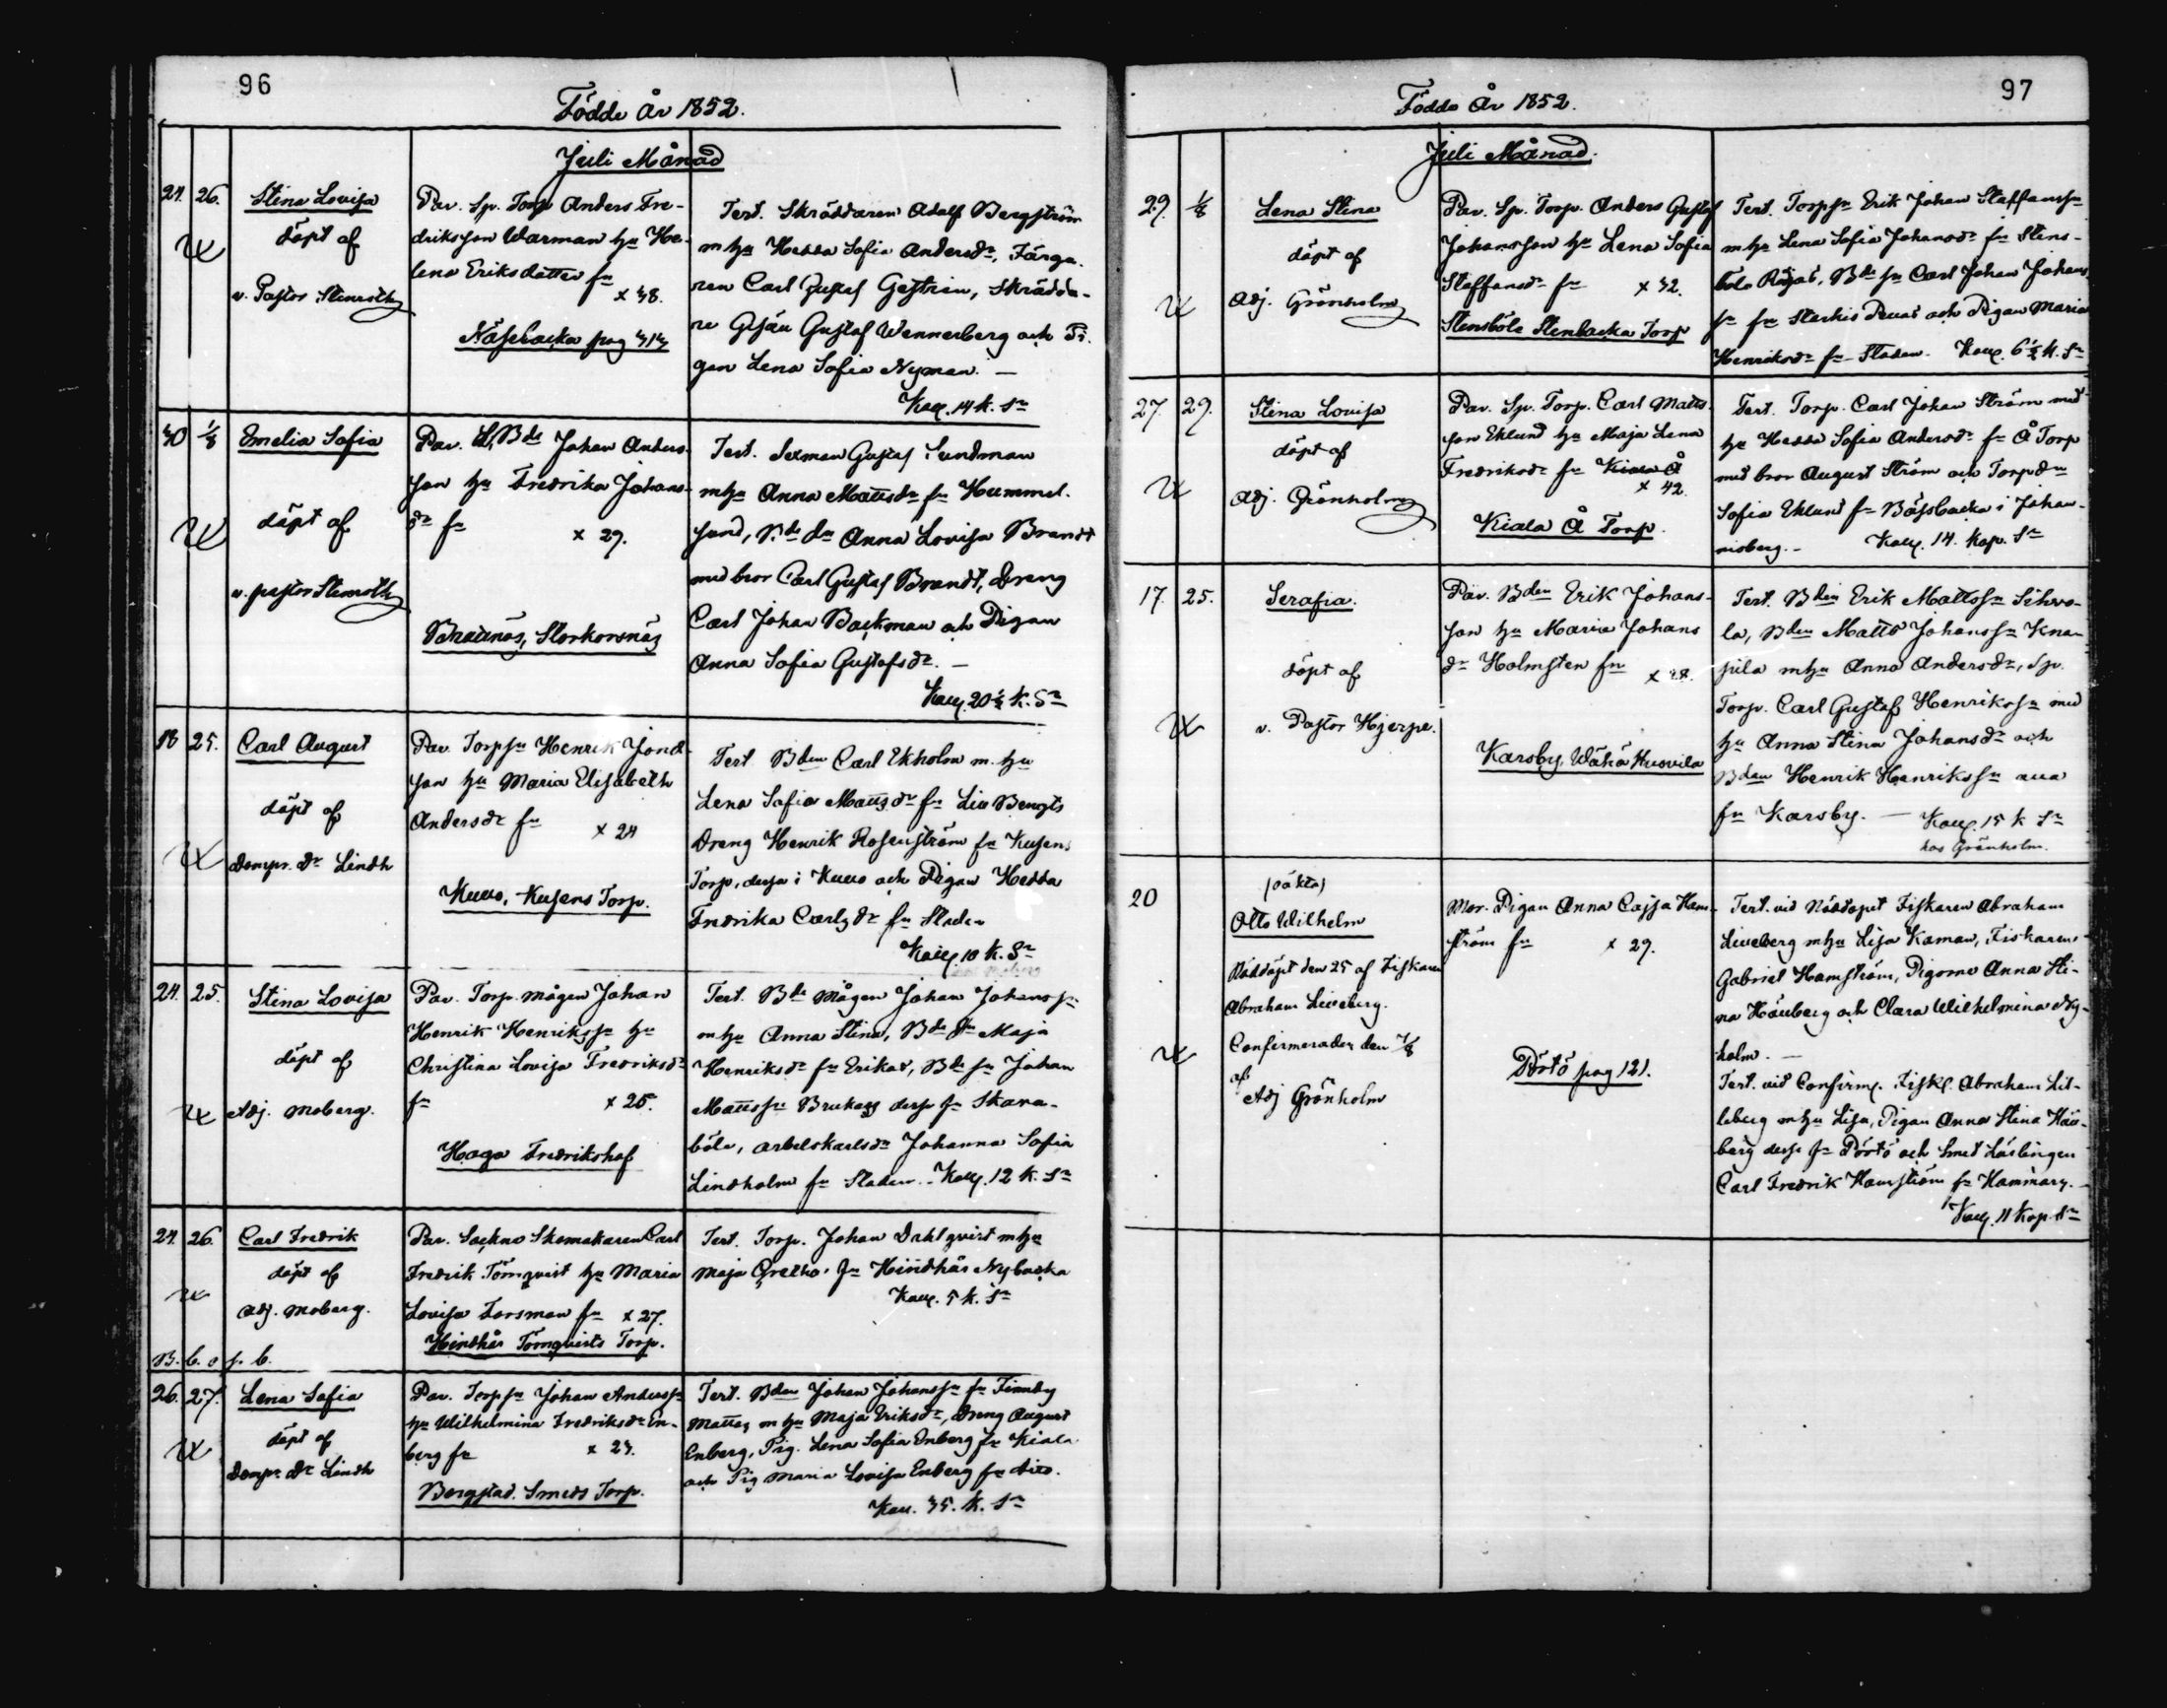 96
Födde År 1852.
Juli Månad
24. 26. Stina Lovisa
döpt af
v. Pastor Stenroth
Par. Sp. Torp Anders Fre-
driksson Warman hu He-
lena Eriksdotter fn
x 38.
Näsebacka pag 313
Test. Skräddaren Adolf Bergström
m hu Hedda Sofia Andersdr, Färga-
ren Carl Gustaf Gestrin, Skrädda-
re Gesäll Gustaf Wennerberg och Pi-
gan Lena Sofia Nyman. —
Koll. 14 k. Sr
30 1/8 Emelia Sofia
döpt af
v. pastor Stenroth
Par. Bde Johan Anders-
son hu Fredrika Johans-
dr fn x 29.
Braxnäs, Storkorsnäs
Test. Sexman Gustaf Sundman
mhu Anna Mattsdr fn Hummel-
sund, Bde dn Anna Lovisa Brandt
med bror Carl Gustaf Brandt, Dreng
Carl Johan Backman och Pigan
Anna Sofia Gustafsdr. —
Koll. 20 1/2 k. Sr
18 25. Carl August
döpt af
Dompr. Dr Lindh
Par. Torpsn Henrik Jonas-
son hu Maria Elisabeth
Andersdr fn x 24
Kuvo, Kusens Torp.
Test Bden Carl Ekholm m. hu
Lena Sofia Mattsdr fn Lill Bengts
Dreng Henrik Rosenström fn Kusens
Torp, dersa i Kuvo och Pigan Hedda
Fredrika Carlsdr fn Staden
Koll. 10 k. Sr
24. 25. Stina Lovisa
döpt af
Adj. Moberg.
Par. Torp. mågen Johan
Henrik Henrikssn hu
Christina Lovisa Fredriksdr
fn x 25.
Haga Fredrikshof
Test. Bde mågen Johan Johanssn
m hu Anna Stina, Bde dn Maja
Henriksdr fn Erikas, Bde sn Johan
Mattssn Brukars ders fn Skava-
böle, arbetskarlsdr Johanna Sofia
Lindholm fn Staden. - Koll. 12 k. Sr
24. 26. Carl Fredrik
döpt af
Adj. Moberg.
B. b. o s. b.
Par. Sockne Skomakaren Carl
Fredrik Törnqvist hu Maria
Lovisa Forsman fn x 27.
Hindhår Törnqvists Torp.
Test. Torp. Johan Dahlqvist mhu
Maja Gretha fn Hindhår Nybacka
Koll. 5 k. Sr
26. 27. Lena Sofia
döpt af
Dompr Dr Lindh
Par. Torpsn Johan Anderssn
hu Wilhelmina Fredriksdr En-
berg fn x 23.
Borgstad. Smeds Torp.
Test. Bden Johan Johanssn fn Finnby
Mattas m hu Maja Eriksdr, Dreng August
Enberg, Pig. Lena Sofia Enberg fn Kiala
och Pig Maria Lovisa Enberg fn dito.
Koll. 35. k. Sr
97
Födde År 1852.
Juli Månad.
29. 1/8 Lena Stina
döpt af
Adj. Grönholm
Par. Sp. Torp. Anders Gustaf
Johansson hu Lena Sofia
Staffansdr fn x 32.
Stensböle Stenbacka Torp
Test. Torpsn Erik Johan Staffanssn
mhu Lena Sofia Johansdr fn Stens-
böle Röjas, Bde sn Carl Johan Johans
sn fn Starkis Pellas och Pigan Maria
Henriksdr fn Staden. Koll. 6 1/2 k. Sr
27. 29. Stina Lovisa
döpt af
Adj. Grönholm
Par. Sp. Torp. Carl Matts-
son Eklund hu Maja Lena
Fredriksdr fn Kiala Å
x 42.
Kiala Å Torp.
Test. Torp. Carl Johan Ström med
hu Hedda Sofia Andersdr fn Å Torp
med bror August Ström och Torpdn
Sofia Eklund fn Bässbacka i Johan-
nisberg. - Koll. 14. kop. Sr
17. 25. Serafia.
döpt af
v. Pastor Hjerpe.
Par. Bden Erik Johans-
son hu Maria Johans
dr Holmsten fn x 28.
Karsby Wähä Husvila
Test. Bden Erik Mattssn Sihvo-
la, Bden Matts Johanssn Knaa-
pila mhu Anna Andersdr, Sp.
Torp. Carl Gustaf Henrikssn med
hu Anna Stina Johansdr och
Bden Henrik Henrikssn alla
fn Karsby. — Koll. 15 k Sr
hos Grönholm.
20 (oäkta)
Otto Wilhelm
Nöddöpt den 25 af Fiskaren
Abraham Liveberg.
Confirmerades den 1/8
af
Adj Grönholm
Mor. Pigan Anna Cajsa Ham-
ström fn x 29.
Pörtö pag 121.
Test. vid Nöddopet Fiskaren Abraham
Liveberg mhu Lisa Kaman, Fiskaren
Gabriel Hamström, Pigorne Anna Sti-
na Häuberg och Clara Wilhelmina Ny-
holm. —
Test. vid Confirm. Fisk. Abraham Lil-
leberg mhu Lisa, Pigan Anna Stina Häu-
berg ders fn Pörtö och Smed Lärlingen
Carl Fredrik Hamström fn Hammars. -
Koll. 11 Kop. Sr